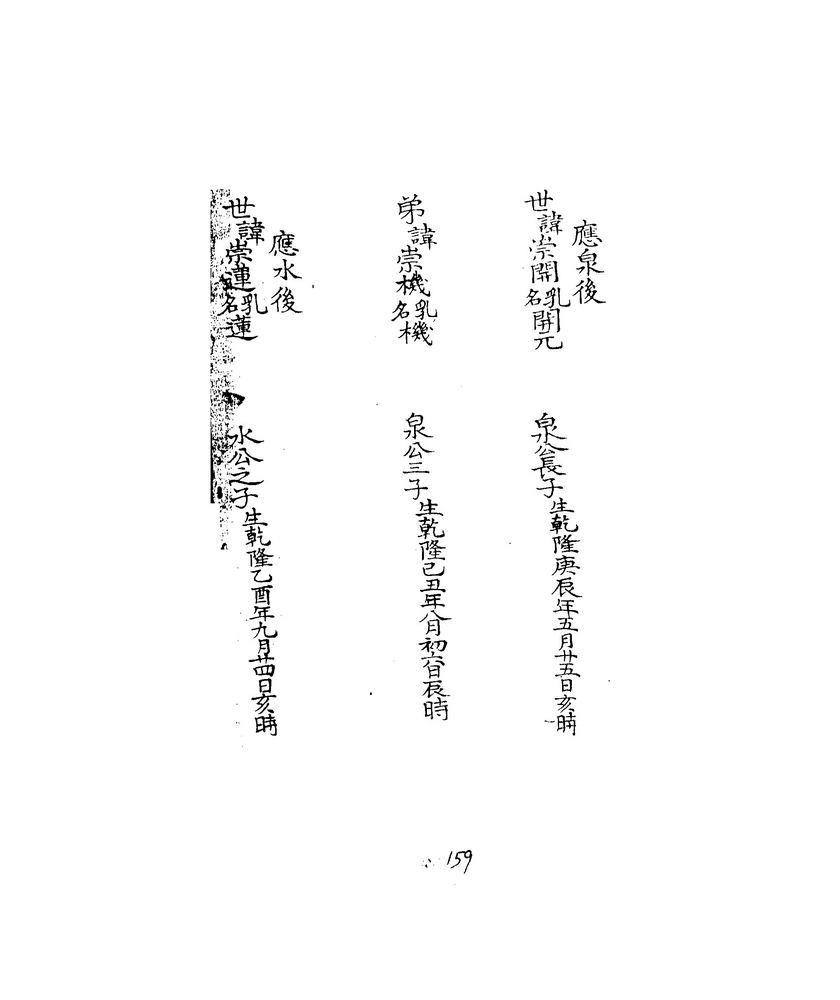 應泉後
世諱崇開乳名開元
泉公長子生乾隆庚辰年五月廿五日亥時
弟諱崇機乳名機
泉公三子生乾隆己丑年八月初六日辰時
應水後
世諱崇蓮乳名蓮
水公之子生乾隆乙酉年九月廿四日亥時
159